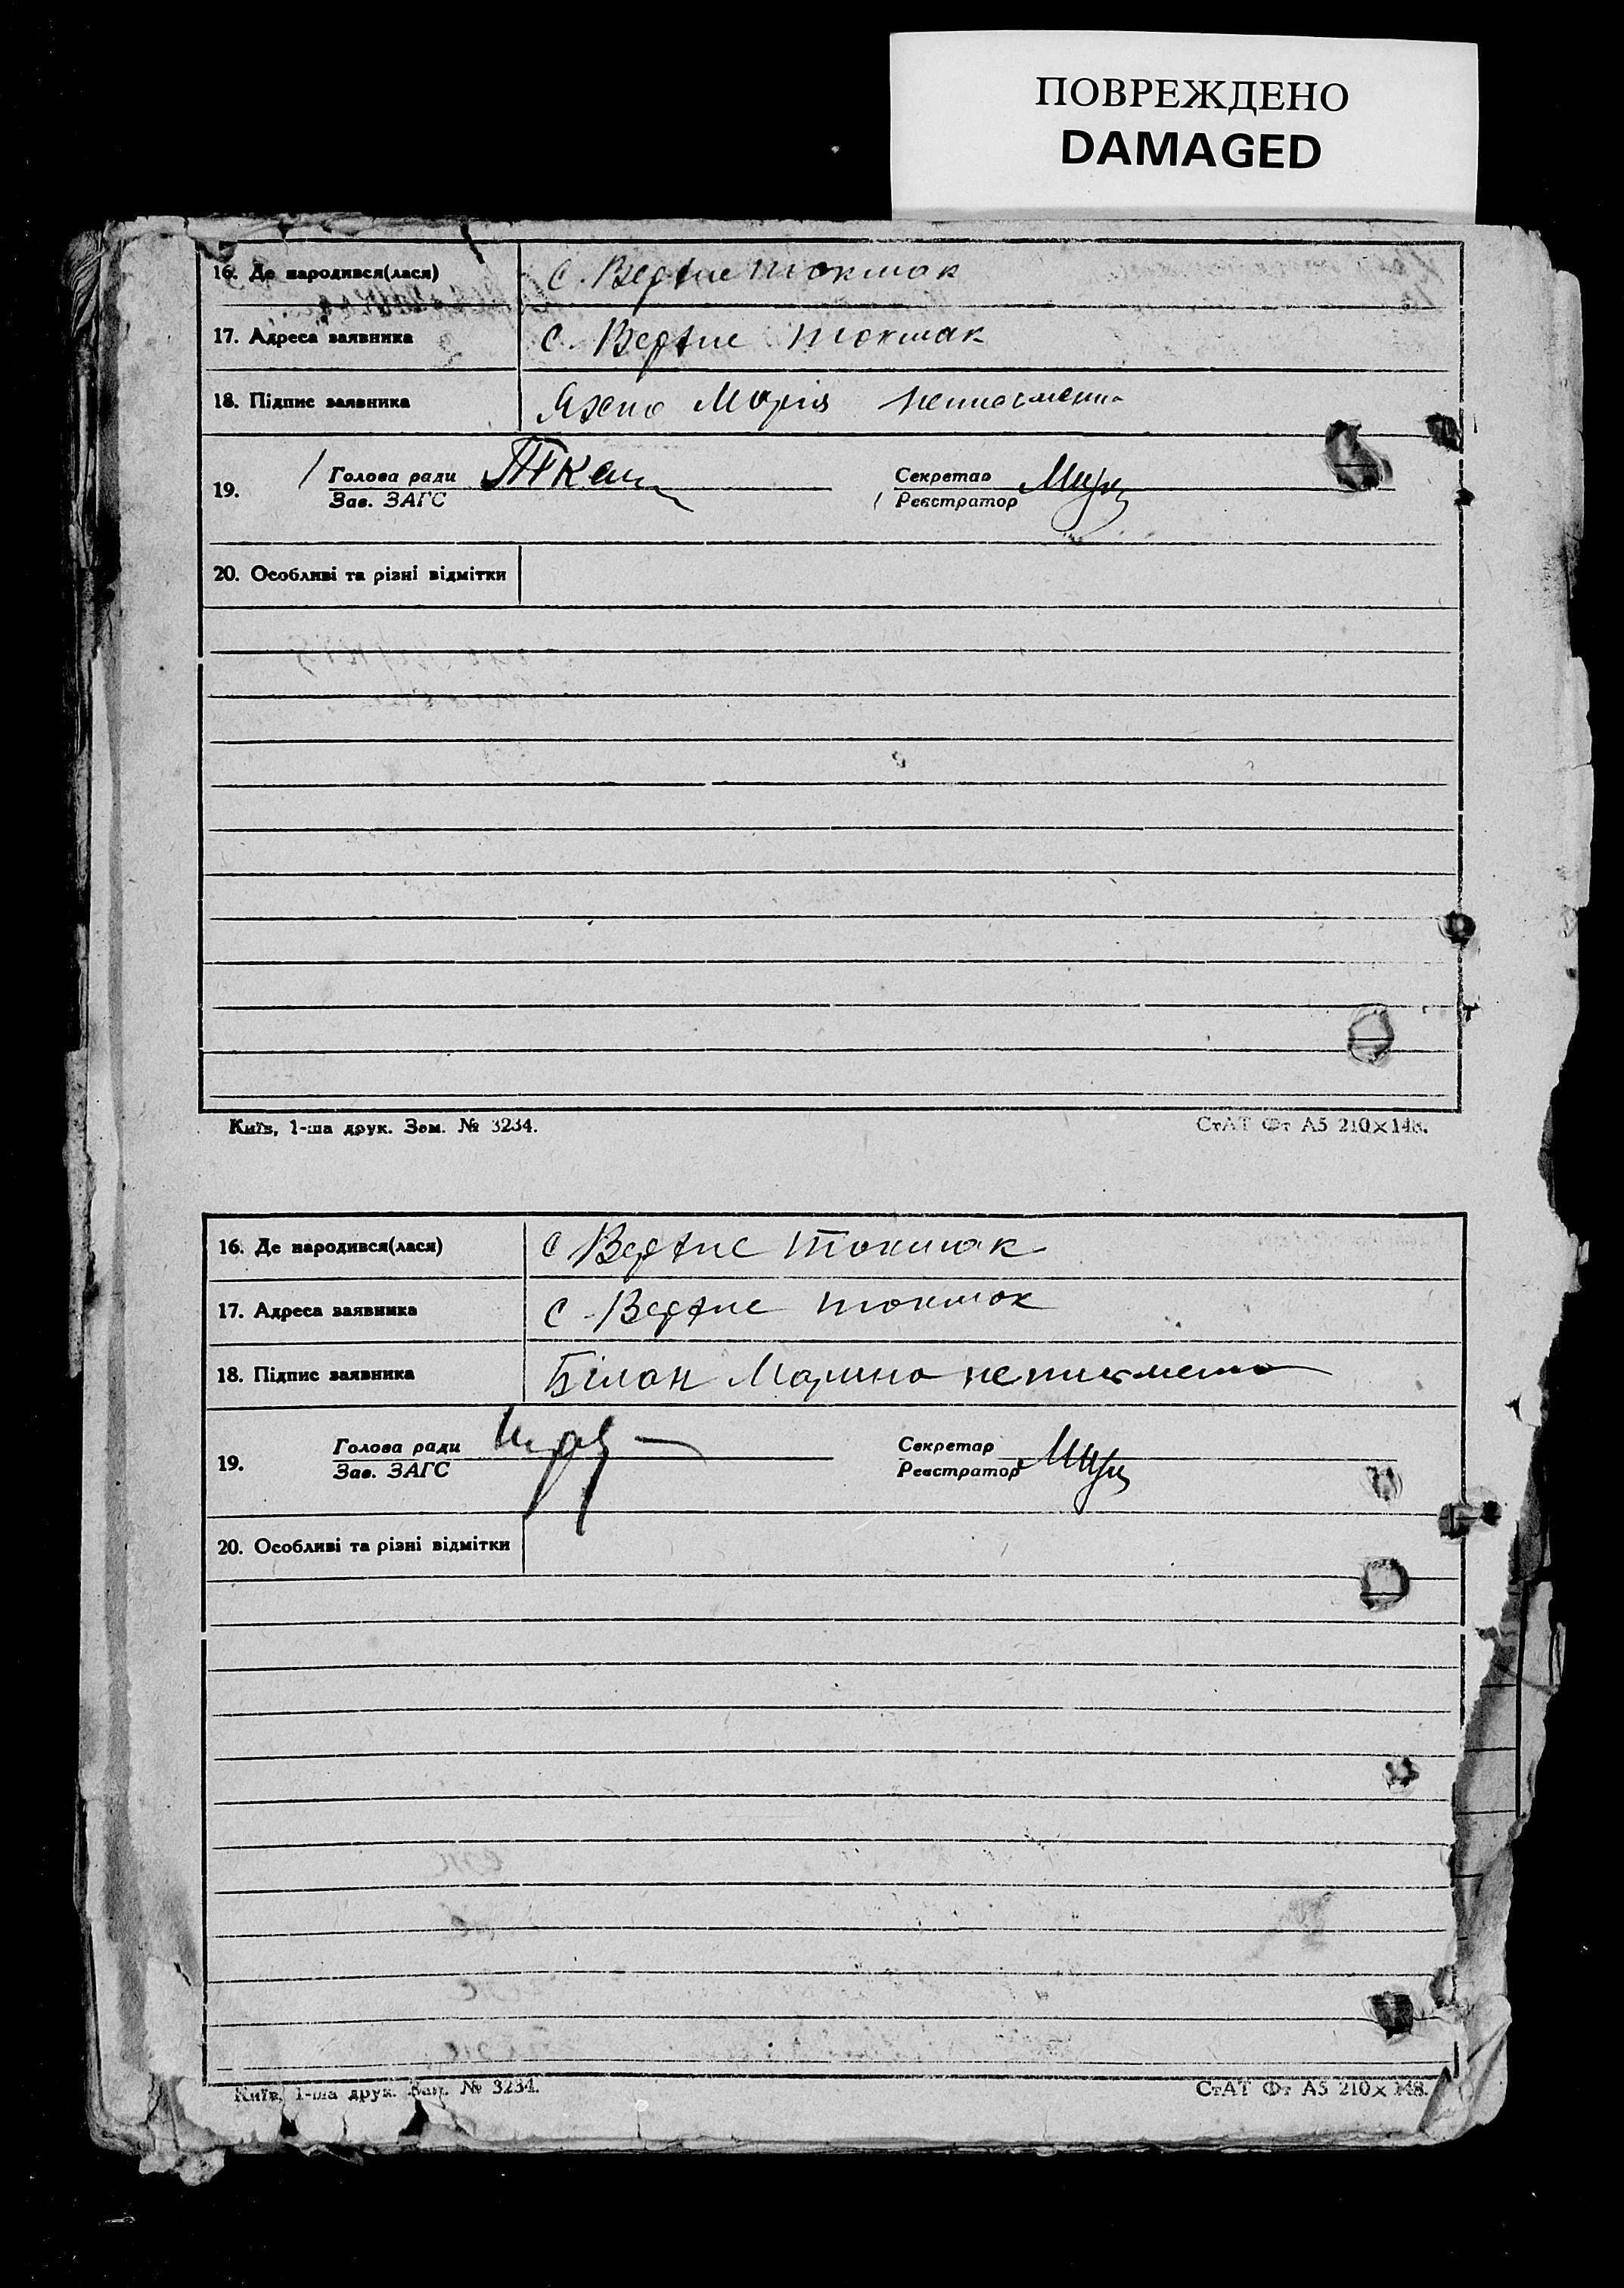 ПОВРЕЖДЕНО
DAMAGED
16. Де народився(лася) с. Верхнє Токмак
17. Адреса заявника с. Верхнє Токмак
18. Підпис заявника Яхно Марія неписьменна
19. Голова ради Секретар
Зав. ЗАГС Реєстратор
20. Особливі та різні відмітки
Київ, 1-ша друк. Зам. № 3234. СтАТ Фт А5 210×148.
16. Де народився(лася) с Верхнє Токмак
17. Адреса заявника с. Верхнє Токмак
18. Підпис заявника Білан Марина неписьмена
19. Голова ради Секретар
Зав. ЗАГС Реєстратор
20. Особливі та різні відмітки
Київ, 1-ша друк. Зам. № 3234. СтАТ Фт А5 210×148.